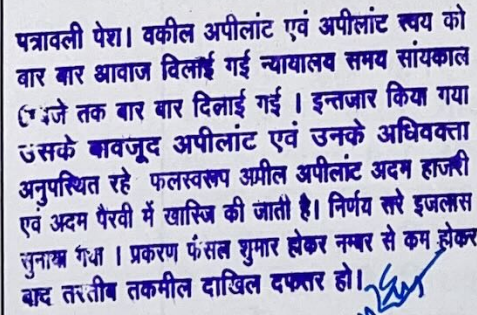 पत्रावली पेश। वकील अपीलांट एवं अपीलांट स्वय को
बार बार आवाज दिलाई गई न्यायालय समय सांयकाल
बजे तक बार बार दिलाई गई । इन्तजार किया गया
उसके बावजूद अपीलांट एवं उनके अधिवक्ता
अनुपस्थित रहे फलस्वरूप अपील अपीलांट अदम हाजरी
एवं अदम पैरवी में खारिज की जाती है। निर्णय सरे इजलास
सुनाया गया । प्रकरण फैसल शुमार होकर नम्बर से कम होकर
बाद तरतीब तकमील दाखिल दफ्तर हो।